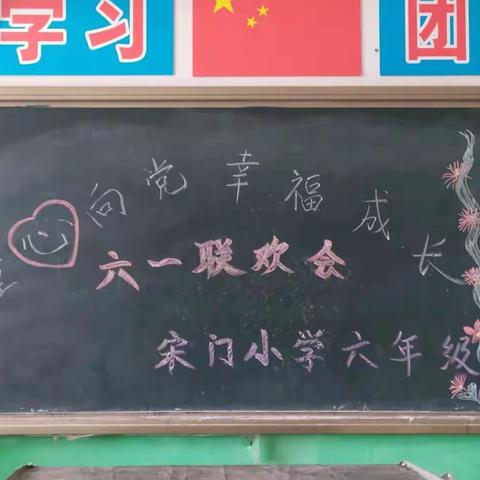 学习 团
心向党 幸福成长
六一联欢会
宋门小学六年级